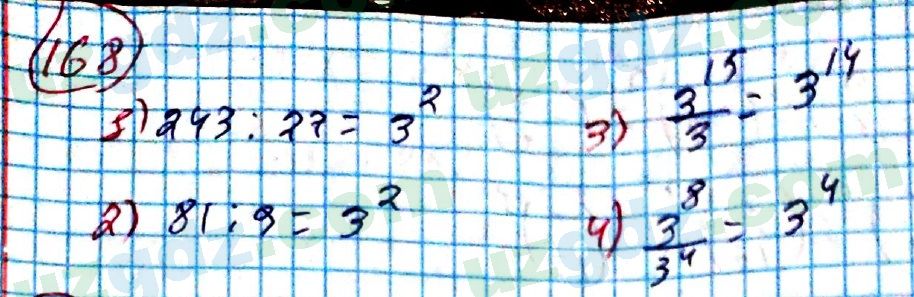 168
1) 243 : 27 = 3²
2) 81 : 9 = 3²
3) 3¹⁵/3 = 3¹⁴
4) 3⁸/3⁴ = 3⁴
uzgdz.com